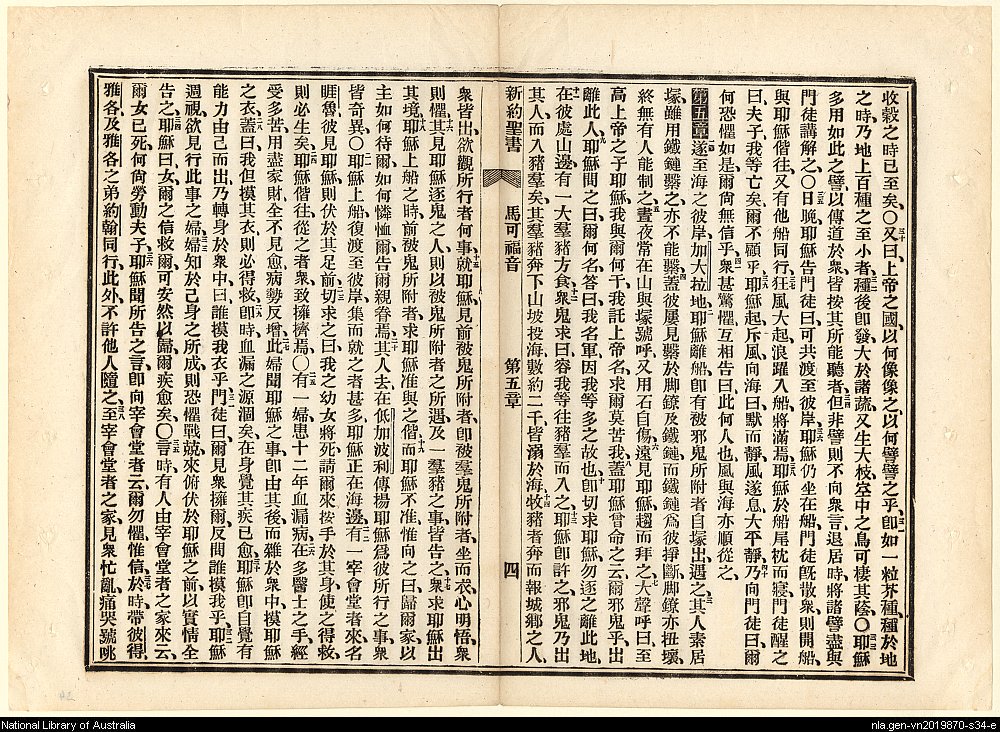 收穀之時已至矣〇又曰、上帝之國、以何像像之、以何譬譬之乎、卽如一粒芥種、種於地
之時、乃地上百種之至小者、種後卽發、大於諸蔬、又生大枝、空中之鳥、可棲其蔭〇耶穌
多用如此之譬、以傳道於衆、皆按其所能聽者、但非譬則不向衆言、退居時、將諸譬盡與
門徒講解之〇日晚、耶穌告門徒曰、可共渡至彼岸、耶穌仍坐在船、門徒旣散衆、則開船、
與耶穌偕往、又有他船同行、狂風大起、浪躍入船、將滿焉、耶穌於船尾枕而寢、門徒醒之
曰、夫子、我等亡矣、爾不顧乎、耶穌起、斥風、向海曰、默而靜、風遂息、大平靜、乃向門徒曰、爾
何恐懼如是、爾尙無信乎、衆甚驚懼、互相告曰、此何人也、風與海亦順從之、
第五章 遂至海之彼岸、加大拉地、耶穌離船、卽有被邪鬼所附者、自塚出、遇之、其人素居
塚、雖用鐵鏈繫之、亦不能繫、蓋彼屢見繫於脚鐐及鐵鏈、而鐵鏈爲彼掙斷、脚鐐亦扭壞、
終無有人能制之、晝夜常在山與塚、號呼、又用石自傷、遠見耶穌、趨而拜之、大聲呼曰、至
高上帝之子耶穌、我與爾何干、我託上帝名求爾、莫苦我、蓋耶穌曾命之云、爾邪鬼乎、出
離此人、耶穌問之曰、爾何名、答曰、我名軍、因我等多之故也、卽切求耶穌、勿逐之離此地、
在彼處山邊、有一大羣豬方食、衆鬼求曰、容我等往豬羣而入之、耶穌卽許之、邪鬼乃出
其人而入豬羣矣、其羣豬奔下山坡投海、數約二千、皆溺於海、牧豬者奔而報城鄉之人、
新約聖書 馬可福音 第五章 四
衆皆出、欲觀所行者何事、就耶穌、見前被鬼所附者、卽被羣鬼所附者、坐而衣、心明悟、衆
則懼、其見耶穌逐鬼之人、則以被鬼所附者之所遇、及一羣豬之事、皆告之、衆求耶穌出
其境、耶穌上船之時、前被鬼所附者、求耶穌准與之偕、而耶穌不准、惟向之曰、歸爾家、以
主如何待爾、如何憐恤爾、告爾親眷焉、其人去、在低加波利、傳揚耶穌爲彼所行之事、衆
皆奇異〇耶穌上船復渡至彼岸、集而就之者甚多、耶穌正在海邊、有一宰會堂者來、名
睚魯、彼見耶穌、則伏於其足前、切求之曰、我之幼女將死、請爾來按手於其身、使之得救、
則必生矣、耶穌偕往、從之者衆、致擁擠焉〇有一婦患十二年血漏病、在多醫士之手、經
受多苦、用盡家財、全不見愈、病勢反增、此婦聞耶穌之事、卽由其後而雜於衆中、摸耶穌
之衣、蓋曰、我但摸其衣、則必得救、卽時血漏之源涸矣、在身覺其疾已愈、耶穌卽自覺有
能力由己而出、乃轉身於衆中曰、誰摸我衣乎、門徒曰、爾見衆擁爾、反問誰摸我乎、耶穌
週視、欲見行此事之婦、婦知於己身之所成、則恐懼戰兢、來俯伏於耶穌之前、以實情全
告之、耶穌曰、女、爾之信救爾、可安然以歸、爾疾愈矣〇言時、有人由宰會堂者之家來云、
爾女已死、何尙勞動夫子、耶穌聞所告之言、卽向宰會堂者云、爾勿懼、惟信、於時帶彼得、
雅各、及雅各之弟約翰同行、此外不許他人隨之、至宰會堂者之家、見衆忙亂、痛哭號咷
National Library of Australia
nla.gen-vn2019870-s34-e